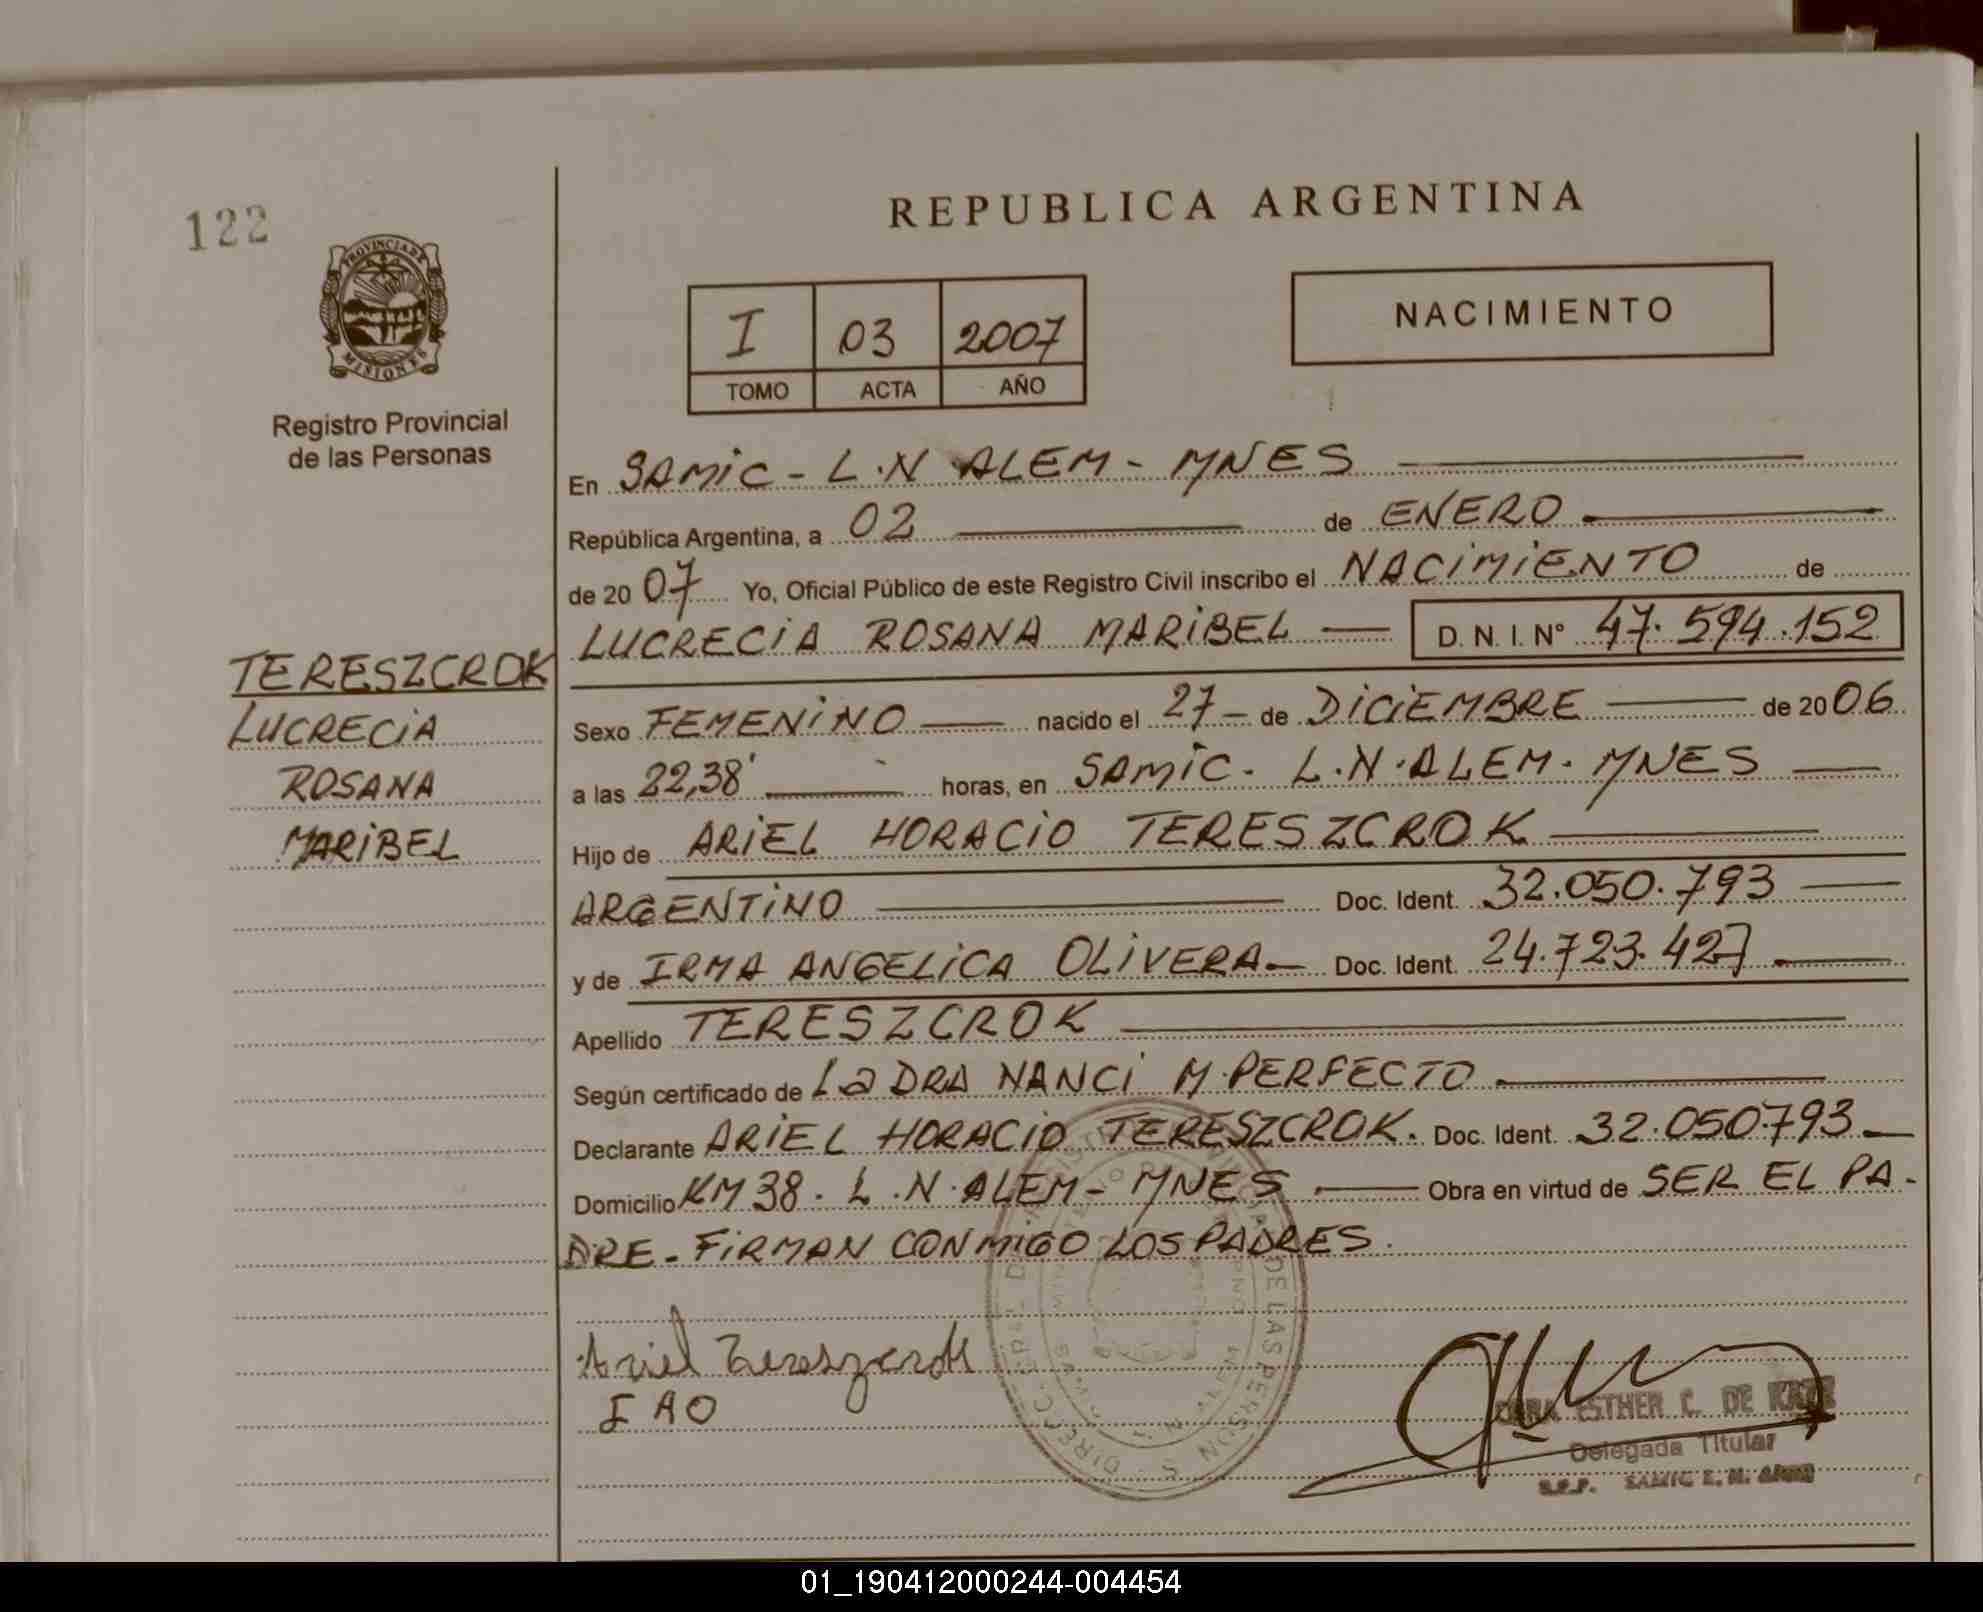 122
PROVINCIA DE
MISIONES
Registro Provincial
de las Personas
REPUBLICA ARGENTINA
I 03 2007
TOMO ACTA AÑO
NACIMIENTO
En SAMIC - L.N ALEM - MNES
República Argentina, a 02 de ENERO
de 20 07 Yo, Oficial Público de este Registro Civil inscribo el NACIMIENTO de
LUCRECIA ROSANA MARIBEL D. N. I. N° 47.594.152
TERESZCROK
LUCRECIA
ROSANA
MARIBEL
Sexo FEMENINO nacido el 27 - de DICIEMBRE de 20 06
a las 22,38' horas, en SAMIC - L.N.ALEM - MNES
Hijo de ARIEL HORACIO TERESZCROK
ARGENTINO Doc. Ident. 32.050.793
y de IRMA ANGELICA OLIVERA Doc. Ident. 24.723.427
Apellido TERESZCROK
Según certificado de La DRA NANCI M. PERFECTO
Declarante ARIEL HORACIO TERESZCROK. Doc. Ident. 32.050793
Domicilio KM 38. L.N.ALEM - MNES Obra en virtud de SER EL PA-
DRE - FIRMAN CONMIGO LOS PADRES.
Ariel Tereszcrok
I AO
ESTHER C. DE
Delegada Titular
01_190412000244-004454